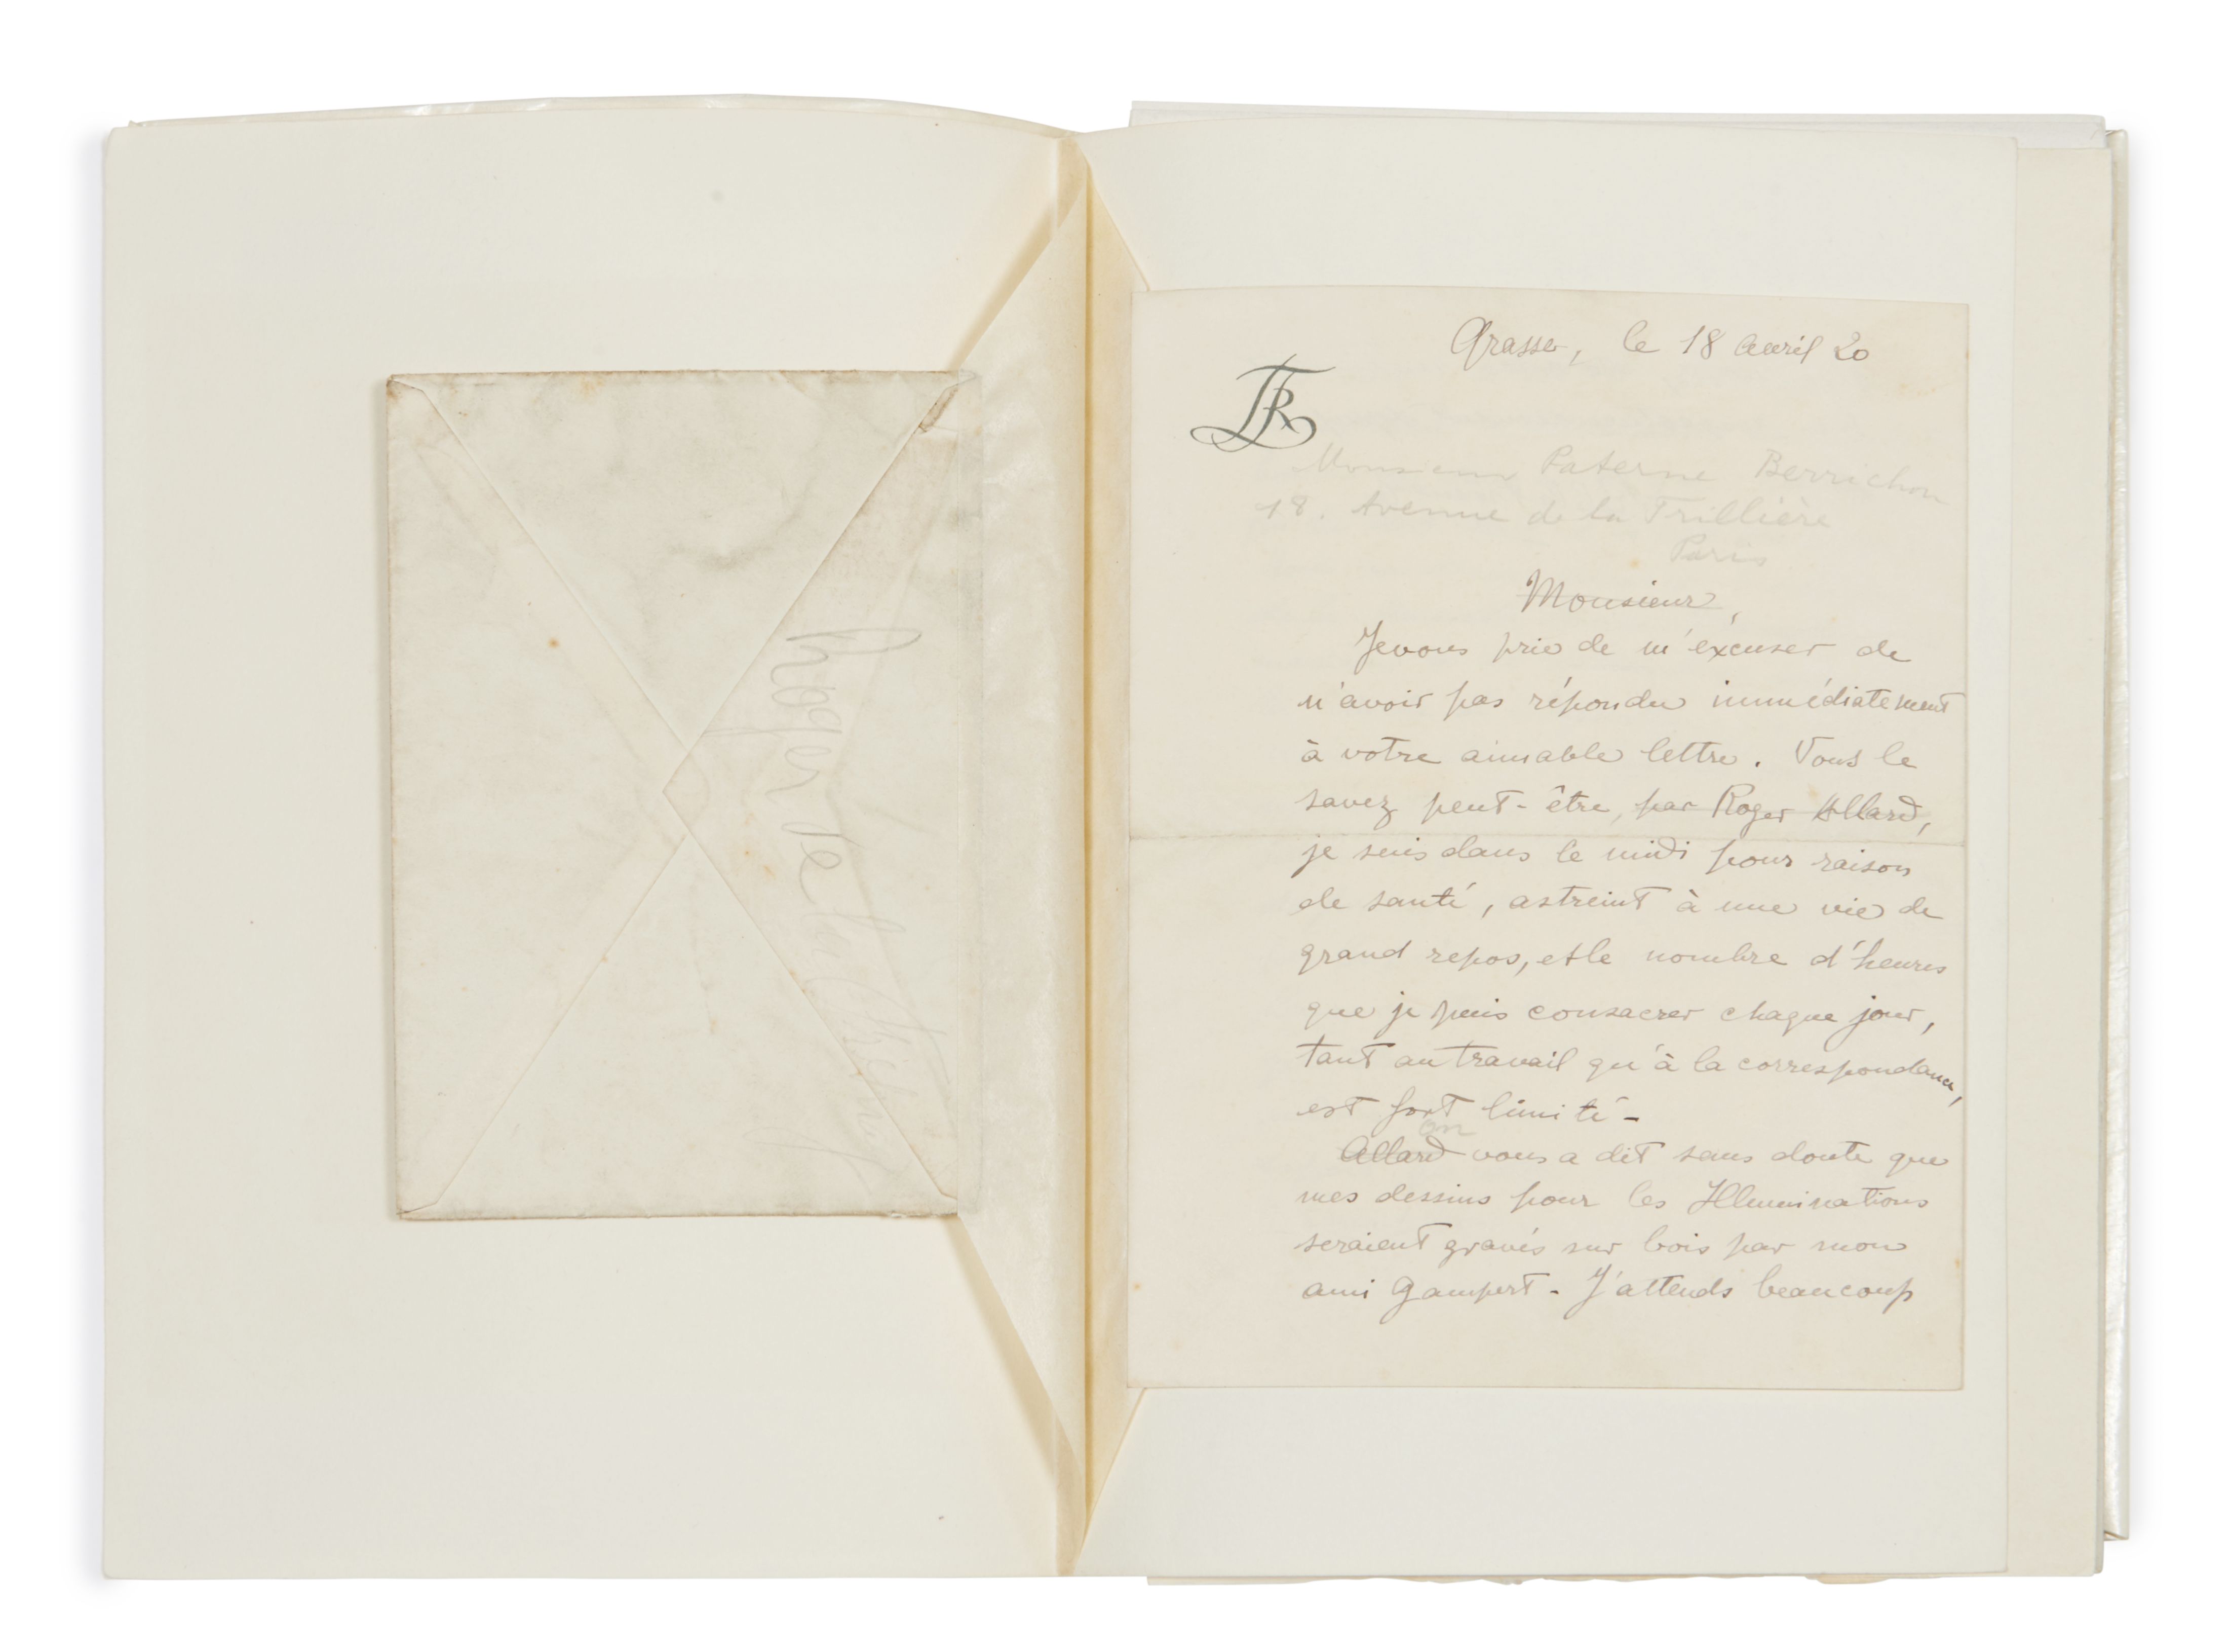 Roger de
Grasse, le 18 Avril 20
Monsieur Paterne Berrichon
18. Avenue de la Frillière
Paris
Monsieur,
Je vous prie de m'éxcuser de
n'avoir pas répondu immédiatement
à votre aimable lettre. Vous le
savez peut-être, par Roger Allard,
je suis dans le midi pour raison
de santé, astreint à une vie de
grand repos, et le nombre d'heures
que je puis consacrer chaque jour,
tant au travail qu'à la correspondance,
est fort limité -
on
Allard vous a dit sans doute que
mes dessins pour les Illuminations
seraient gravés sur bois par mon
ami Gampert - J'attends beaucoup